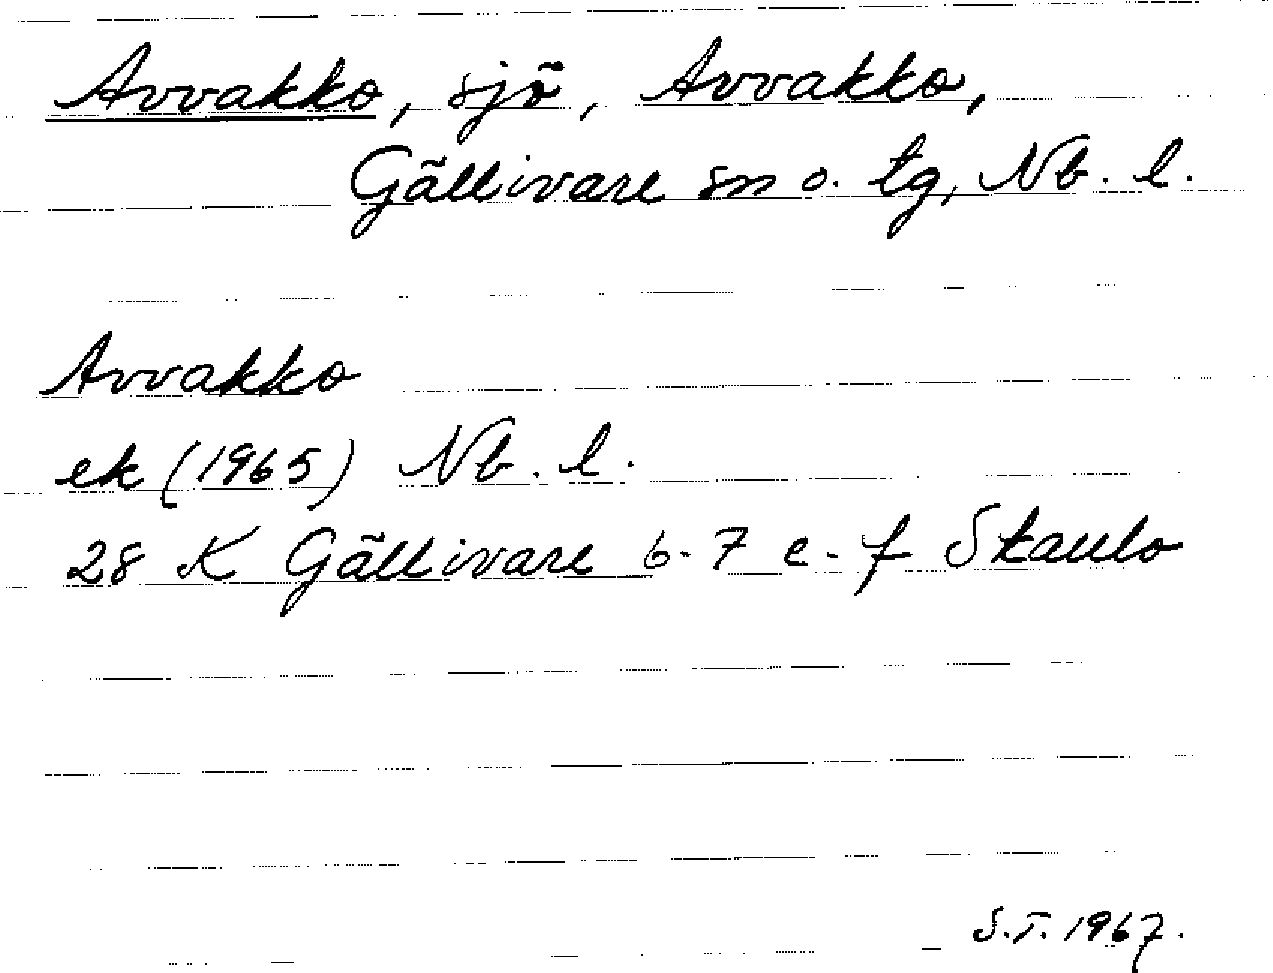 Avvakko, sjö, Avvakko,
Gällivare sn o. tg, Nb. l.
Avvakko
ek (1965) Nb. l.
28 K Gällivare 6-7 e-f Skaulo
S.T. 1967.